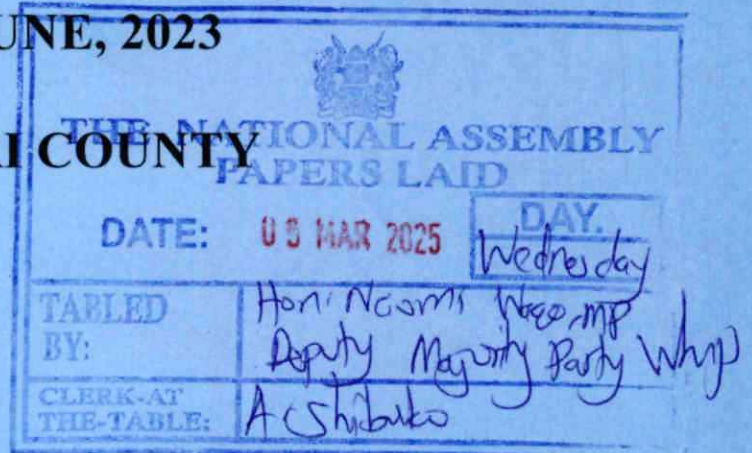 UNE, 2023
THE NATIONAL ASSEMBLY
I COUNTY
PAPERS LAID
DATE: 05 MAR 2025 DAY.
Wednesday
TABLED BY: Hon. Naomi Waqo, MP
Deputy Majority Party Whip
CLERK-AT THE-TABLE: A Shibuko